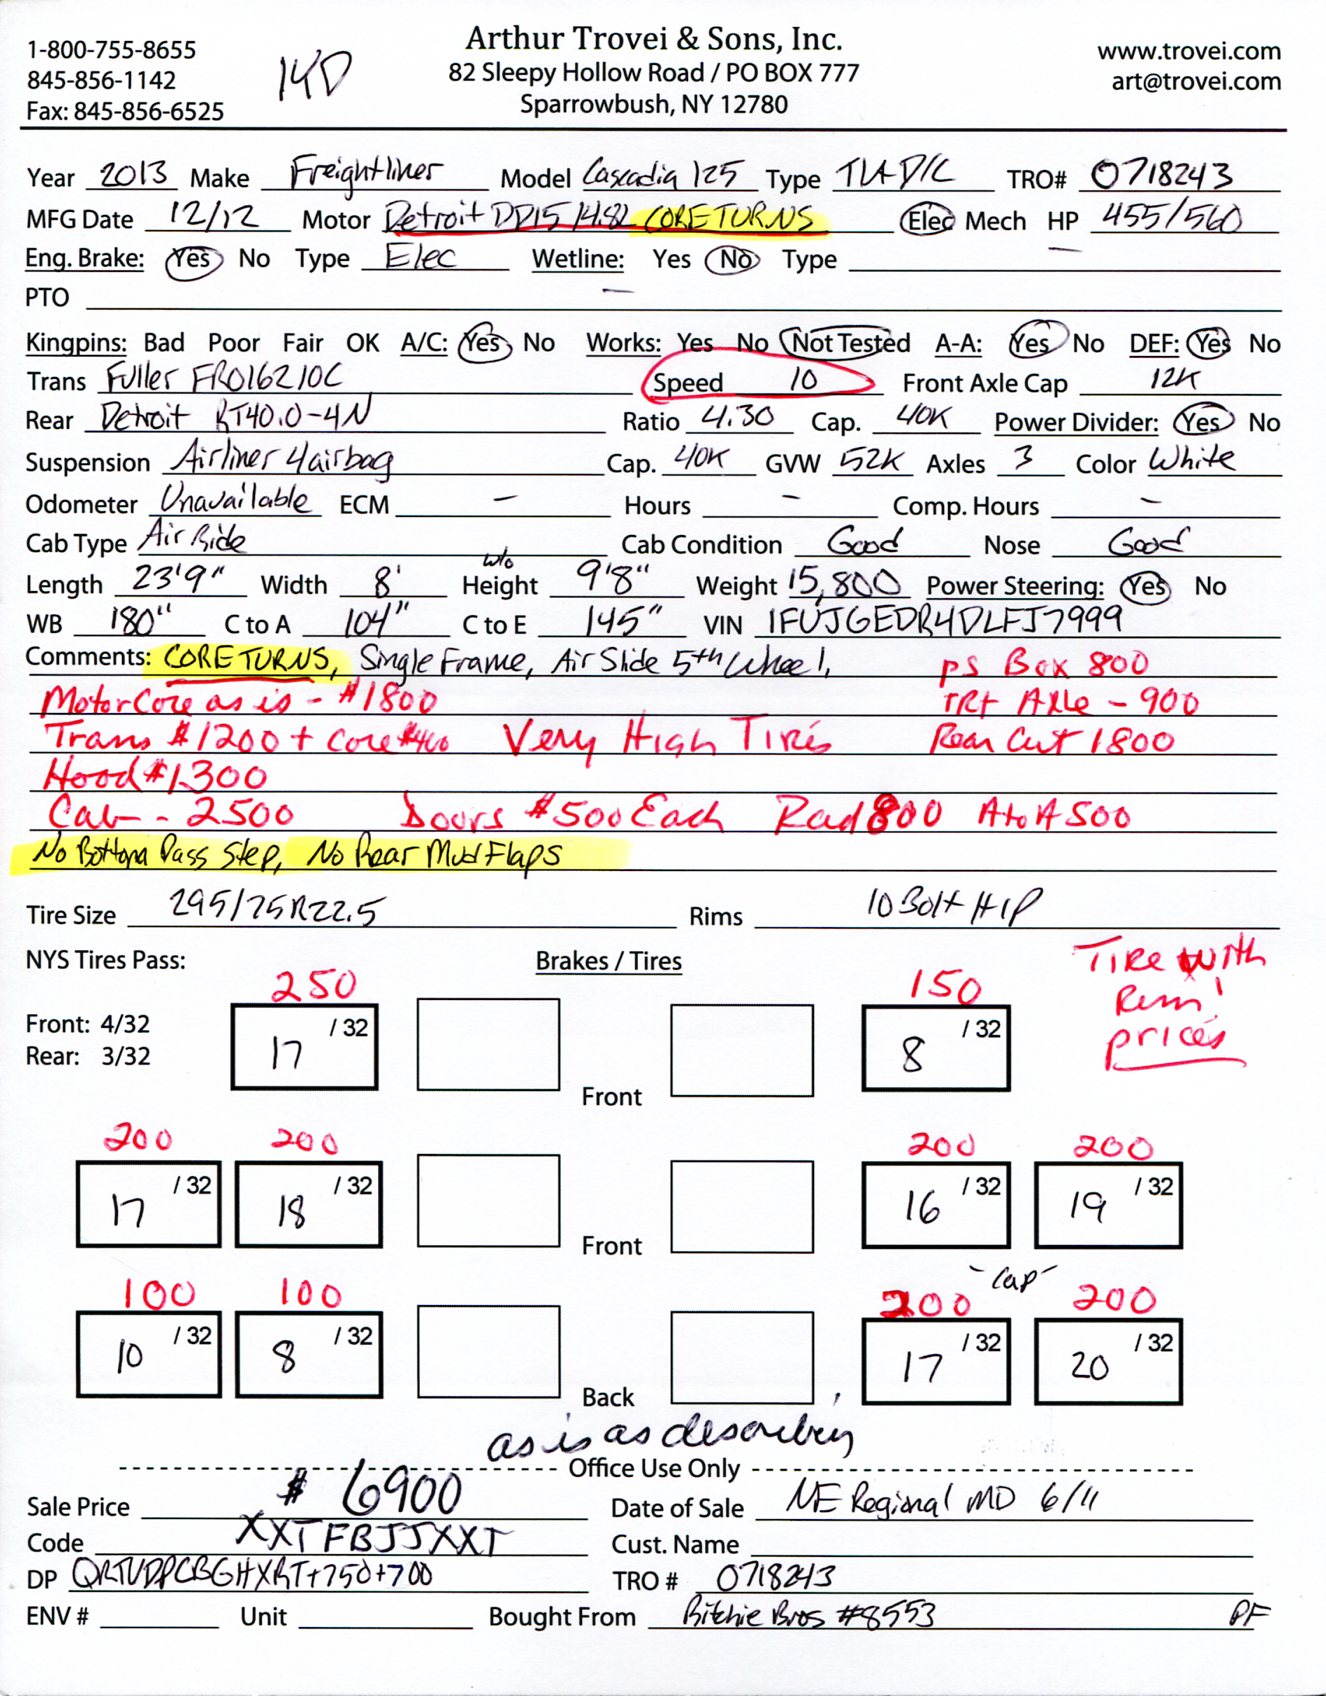 Arthur Trovei & Sons, Inc.
1-800-755-8655 82 Sleepy Hollow Road / PO BOX 777 www.trovei.com
845-856-1142 14D Sparrowbush, NY 12780 art@trovei.com
Fax: 845-856-6525
Year 2013 Make Freightliner Model Cascadia 125 Type T/A D/C TRO# 0718243
MFG Date 12/12 Motor Detroit DD15 14.8L CORE TURNS Elec Mech HP 455/560
Eng. Brake: Yes No Type Elec Wetline: Yes No Type
PTO
Kingpins: Bad Poor Fair OK A/C: Yes No Works: Yes No Not Tested A-A: Yes No DEF: Yes No
Trans Fuller FRO16210C Speed 10 Front Axle Cap 12K
Rear Detroit RT40.0-4N Ratio 4.30 Cap. 40K Power Divider: Yes No
Suspension Airliner 4 airbag Cap. 40K GVW 52K Axles 3 Color White
Odometer Unavailable ECM - Hours - Comp. Hours -
Cab Type Air Ride Cab Condition Good Nose Good
Length 23'9" Width 8' w/o Height 9'8" Weight 15,800 Power Steering: Yes No
WB 180" C to A 104" C to E 145" VIN 1FUJGEDR4DLFJ7999
Comments: CORE TURNS, Single Frame, Air Slide 5th Wheel, PS Box 800
Motor Core as is - $1800 FRt Axle - 900
Trans $1200 + Core $400 Very High Tires Rear Cut 1800
Hood $1300
Cab - 2500 Doors $500 Each Rad 800 A to A 500
No Bottom Pass Step, No Rear Mud Flaps
Tire Size 295/75R22.5 Rims 10 Bolt H/P
NYS Tires Pass: Brakes / Tires Tire with
Rim!
prices
250 150
Front: 4/32 17 /32 8 /32
Rear: 3/32
Front
200 200 200 200
17 /32 18 /32 16 /32 19 /32
Front
-Cap-
100 100 200 200
10 /32 8 /32 17 /32 20 /32
Back
as is as described
Office Use Only
Sale Price $6900 Date of Sale NE Regional MD 6/11
Code XXTFBJJXXT Cust. Name
DP QRTUDPCBGHXRT+750+700 TRO # 0718243
ENV # Unit Bought From Ritchie Bros #8553 PF